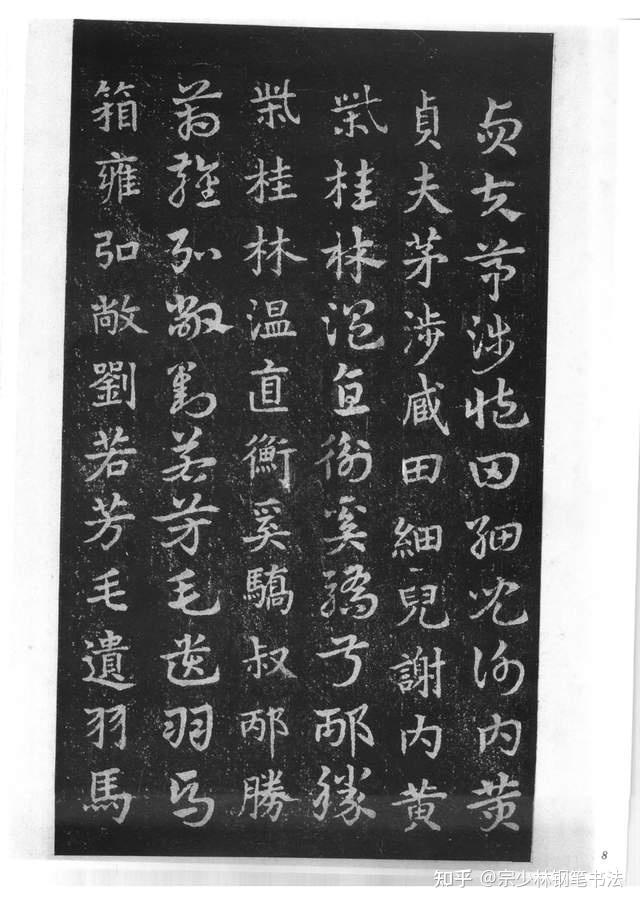 貞夫茅涉臧田細兒謝內黃
貞夫茅涉臧田細兒謝內黃
柴桂林溫直衡奚驕叔邴勝
柴桂林溫直衡奚驕叔邴勝
箱雍弘敞劉若芳毛遺羽馬
箱雍弘敞劉若芳毛遺羽馬
8
知乎 @宗少林钢笔书法